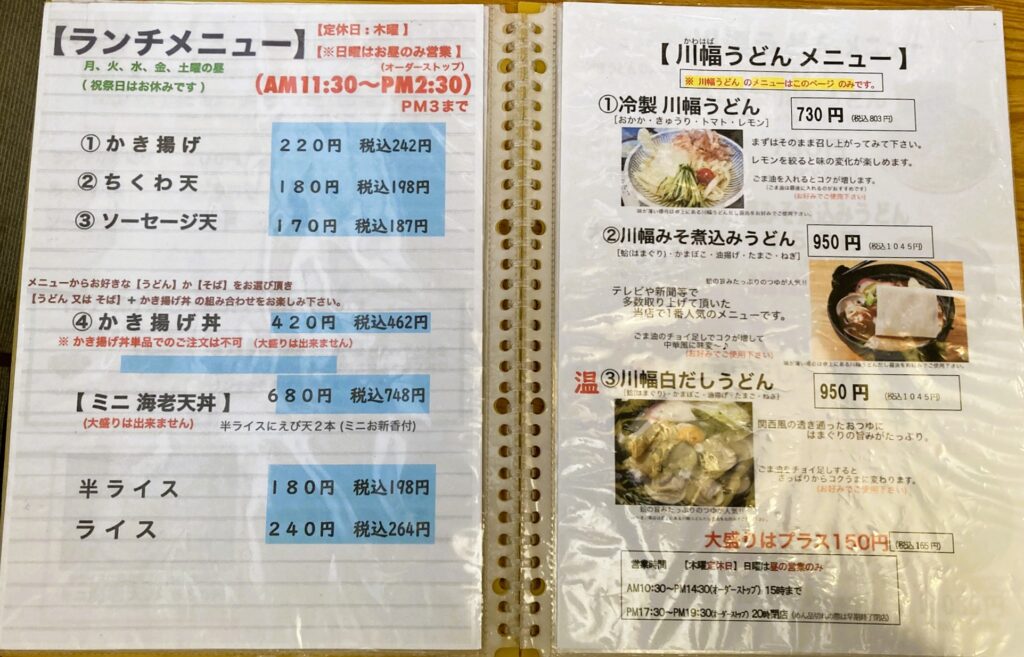 【ランチメニュー】
【定休日：木曜】
【※日曜はお昼のみ営業】
月、火、水、金、土曜の昼
(オーダーストップ)
(祝祭日はお休みです)
(AM11:30〜PM2:30)
PM3まで
①かき揚げ 220円 税込242円
②ちくわ天 180円 税込198円
③ソーセージ天 170円 税込187円
メニューからお好きな【うどん】か【そば】をお選び頂き
【うどん 又は そば】＋かき揚げ丼 の組み合わせをお楽しみ下さい。
④かき揚げ丼 420円 税込462円
※ かき揚げ丼単品でのご注文は不可 (大盛りは出来ません)
【ミニ 海老天丼】 680円 税込748円
(大盛りは出来ません) 半ライスにえび天２本(ミニお新香付)
半ライス 180円 税込198円
ライス 240円 税込264円
かわはば
【川幅うどん メニュー】
※ 川幅うどん のメニューはこのページ のみです。
①冷製 川幅うどん 730円 (税込803円)
[おかか・きゅうり・トマト・レモン]
まずはそのまま召し上がってみて下さい。
レモンを絞ると味の変化が楽しめます。
ごま油を入れるとコクが増します。
(ごま油は最後に入れるのがおすすめです)
(お好みでご使用下さい)
味が薄い様の場合は卓上にある川幅うどんだし醤油をお好みでご使用下さい。
②川幅みそ煮込みうどん 950円 (税込1045円)
[蛤(はまぐり)・かまぼこ・油揚げ・たまご・ねぎ]
蛤の旨みたっぷりのつゆが人気!!
テレビや新聞等で
多数取り上げて頂いた
当店で1番人気のメニューです。
ごま油のチョイ足しでコクが増して
中華風に味変〜♪
(お好みでご使用下さい)
温 ③川幅白だしうどん 950円 (税込1045円)
[蛤(はまぐり)・かまぼこ・油揚げ・たまご・ねぎ]
関西風の透き通ったおつゆに
はまぐりの旨みがたっぷり。
ごま油をチョイ足しすると
さっぱりからコクうまに変わります。
(お好みでご使用下さい)
蛤の旨みたっぷりのつゆが人気!!
大盛りはプラス150円 (税込165円)
営業時間 【木曜定休日】日曜は昼の営業のみ
AM10:30〜PM14:30(オーダーストップ) 15時まで
PM17:30〜PM19:30(オーダーストップ) 20時閉店 (めん品切れの際は早期終了閉店)